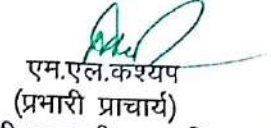 एम.एल.कश्यप
(प्रभारी प्राचार्य)